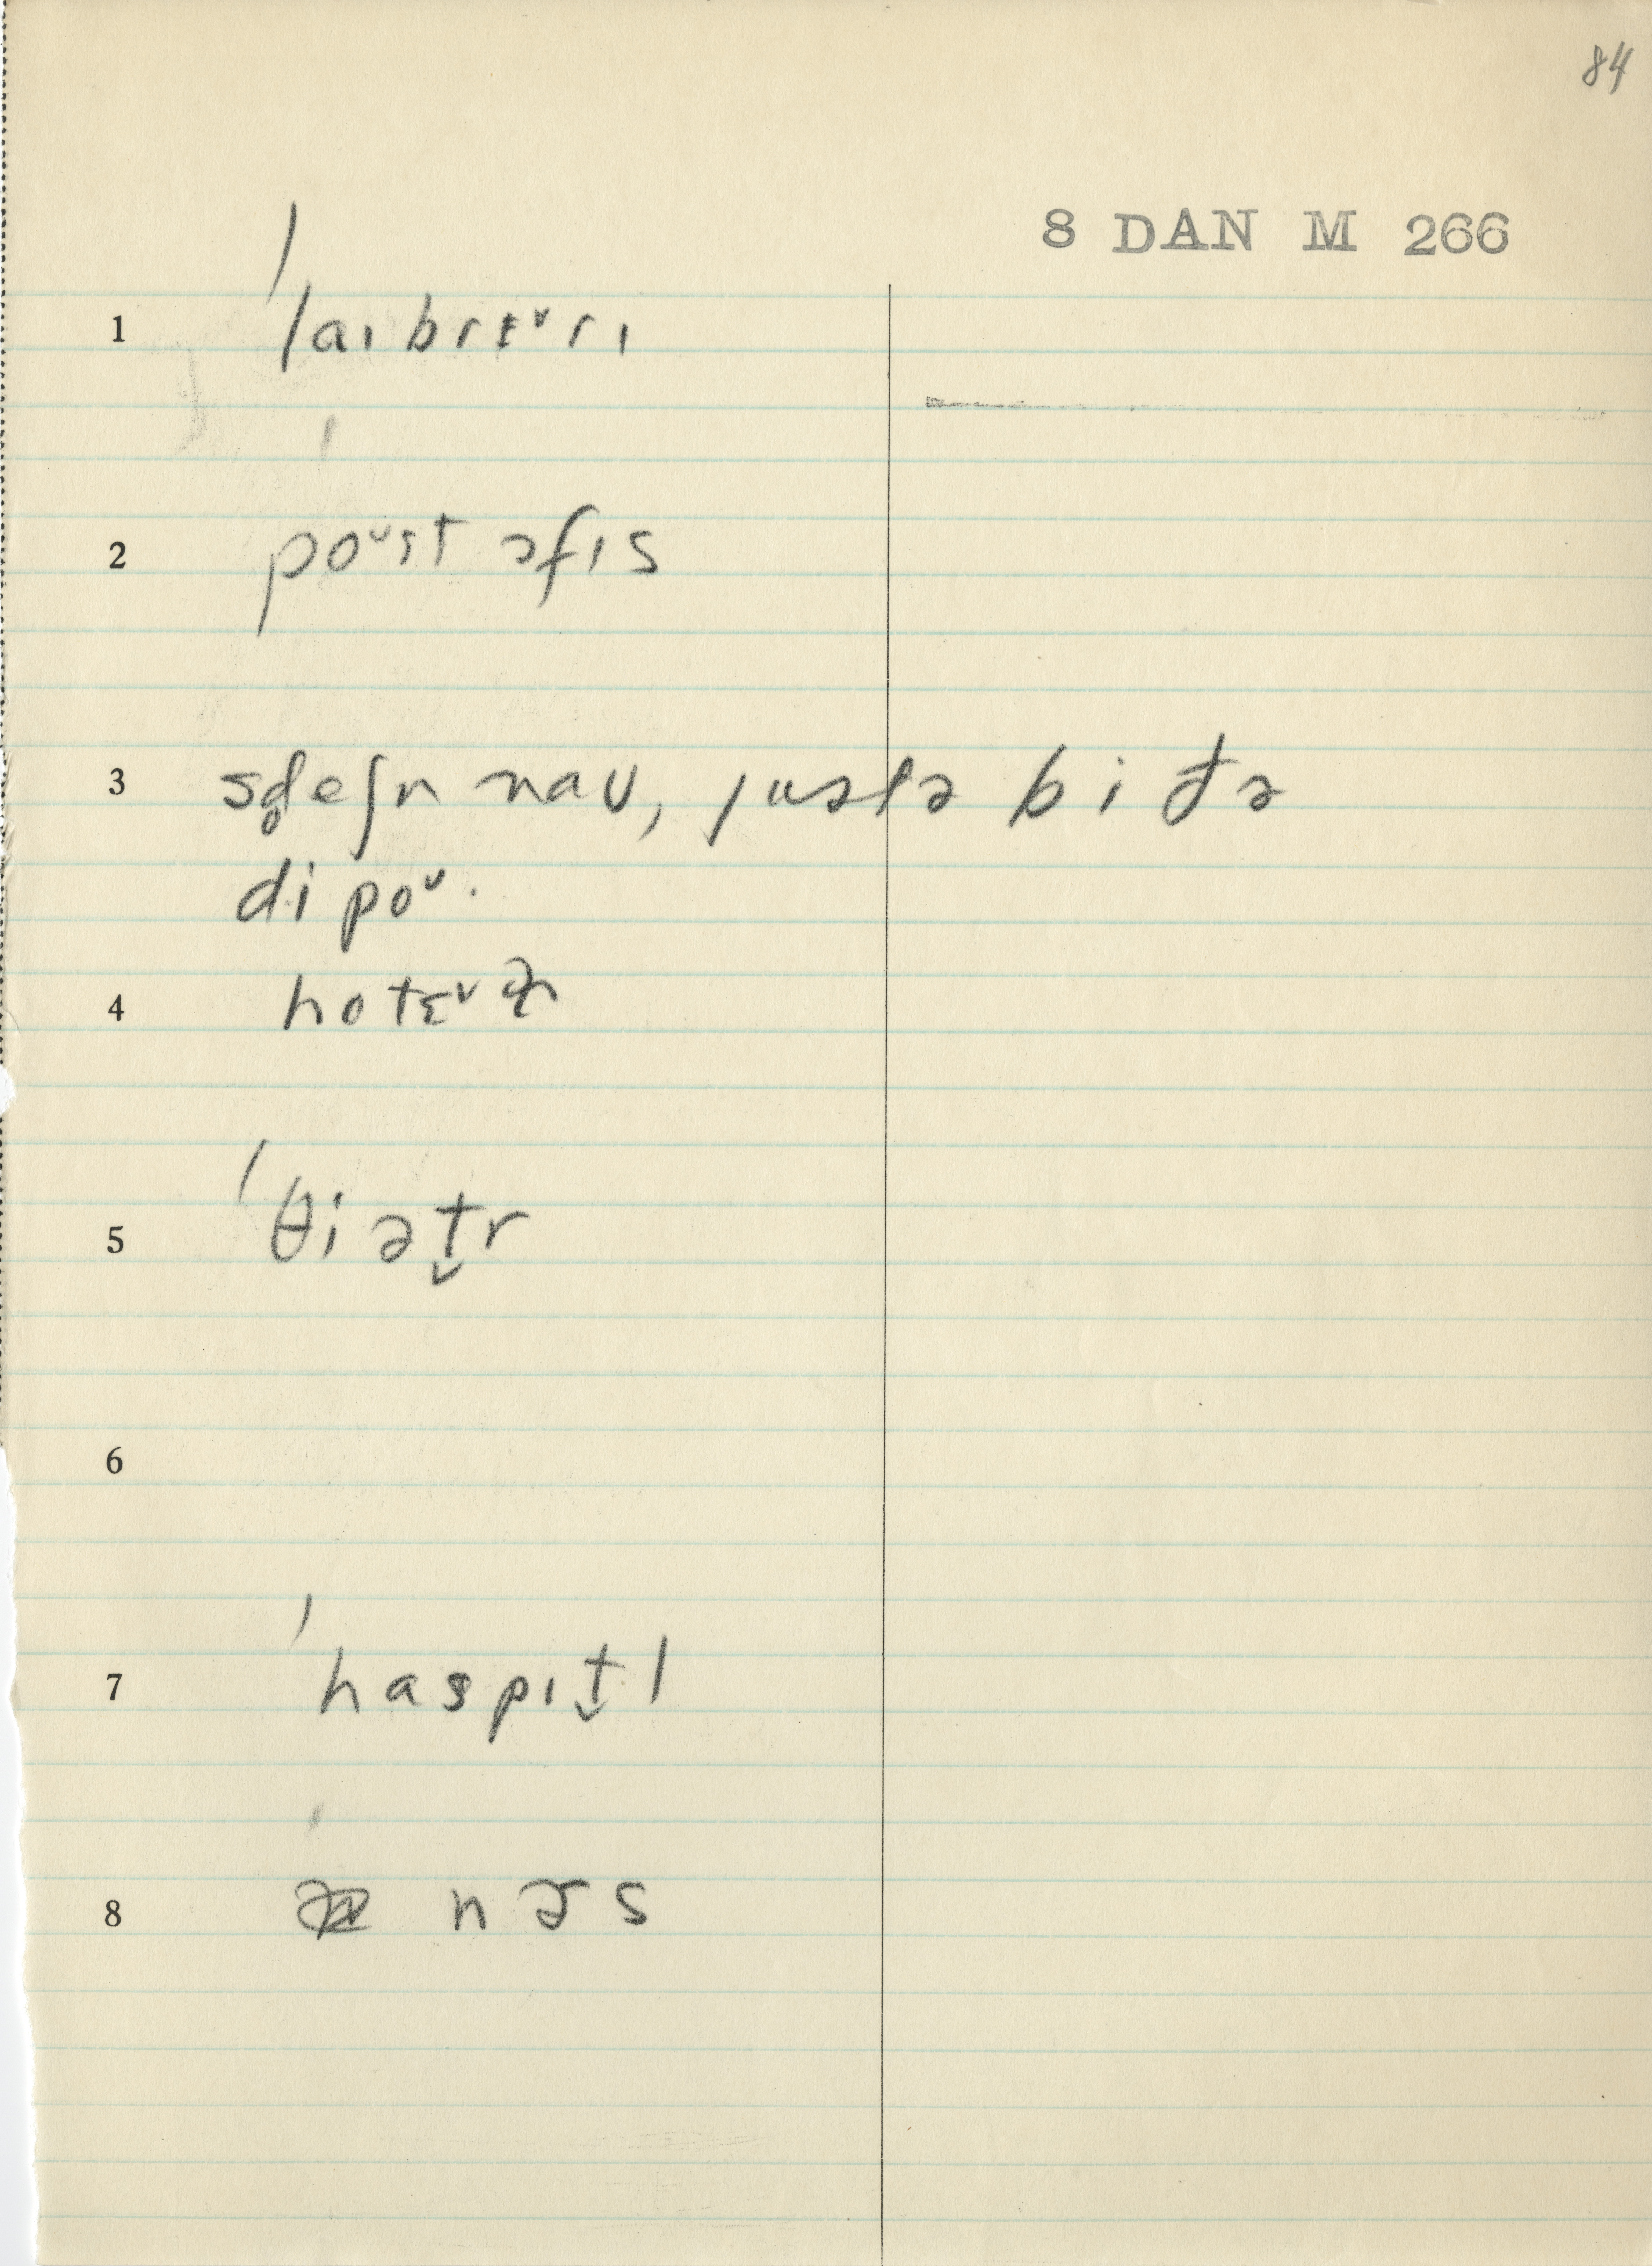 84
8 DAN M 266
1 ˈlaɪbrɛ˅rɪ
2 poᵘst ɔfɪs
3 sd̥eʃn naʊ, justə bi đə
dipoᵘ.
4 hotɛ˅
5 ˈθiət̬r
6
7 ˈhaspɪt̬l
8 nɚs